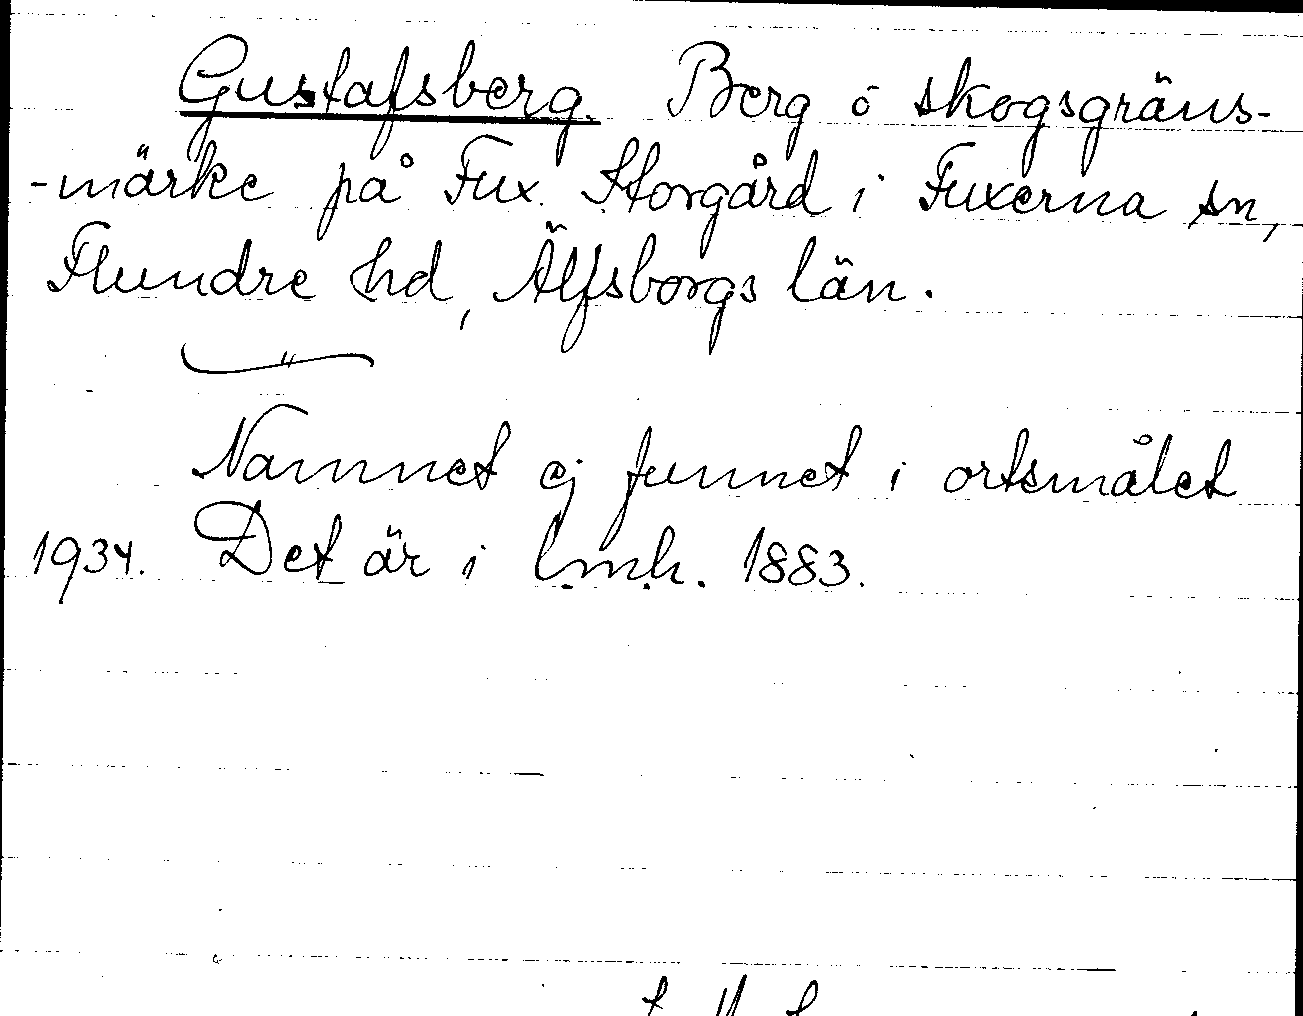 Gustafsberg. Berg ö skogsgräns-
-märke på Fux. Storgård i Fuxerna sn,
Flundre hd, Älfsborgs län.
Namnet ej funnet i ortsmålet
1934. Det är i l.m.h. 1883.